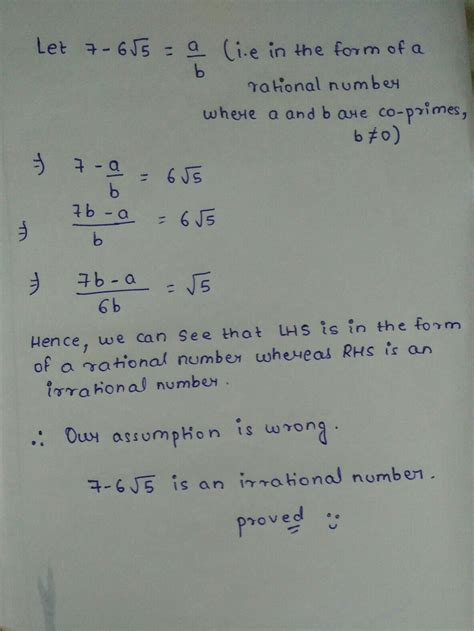 Let 7-6√5 = a/b (i.e in the form of a
rational number
where a and b are co-primes,
b≠0)
⇒ 7 - a/b = 6√5
⇒ (7b - a)/b = 6√5
⇒ (7b - a)/6b = √5
Hence, we can see that LHS is in the form
of a rational number whereas RHS is an
irrational number.
∴ Our assumption is wrong.
7-6√5 is an irrational number.
proved